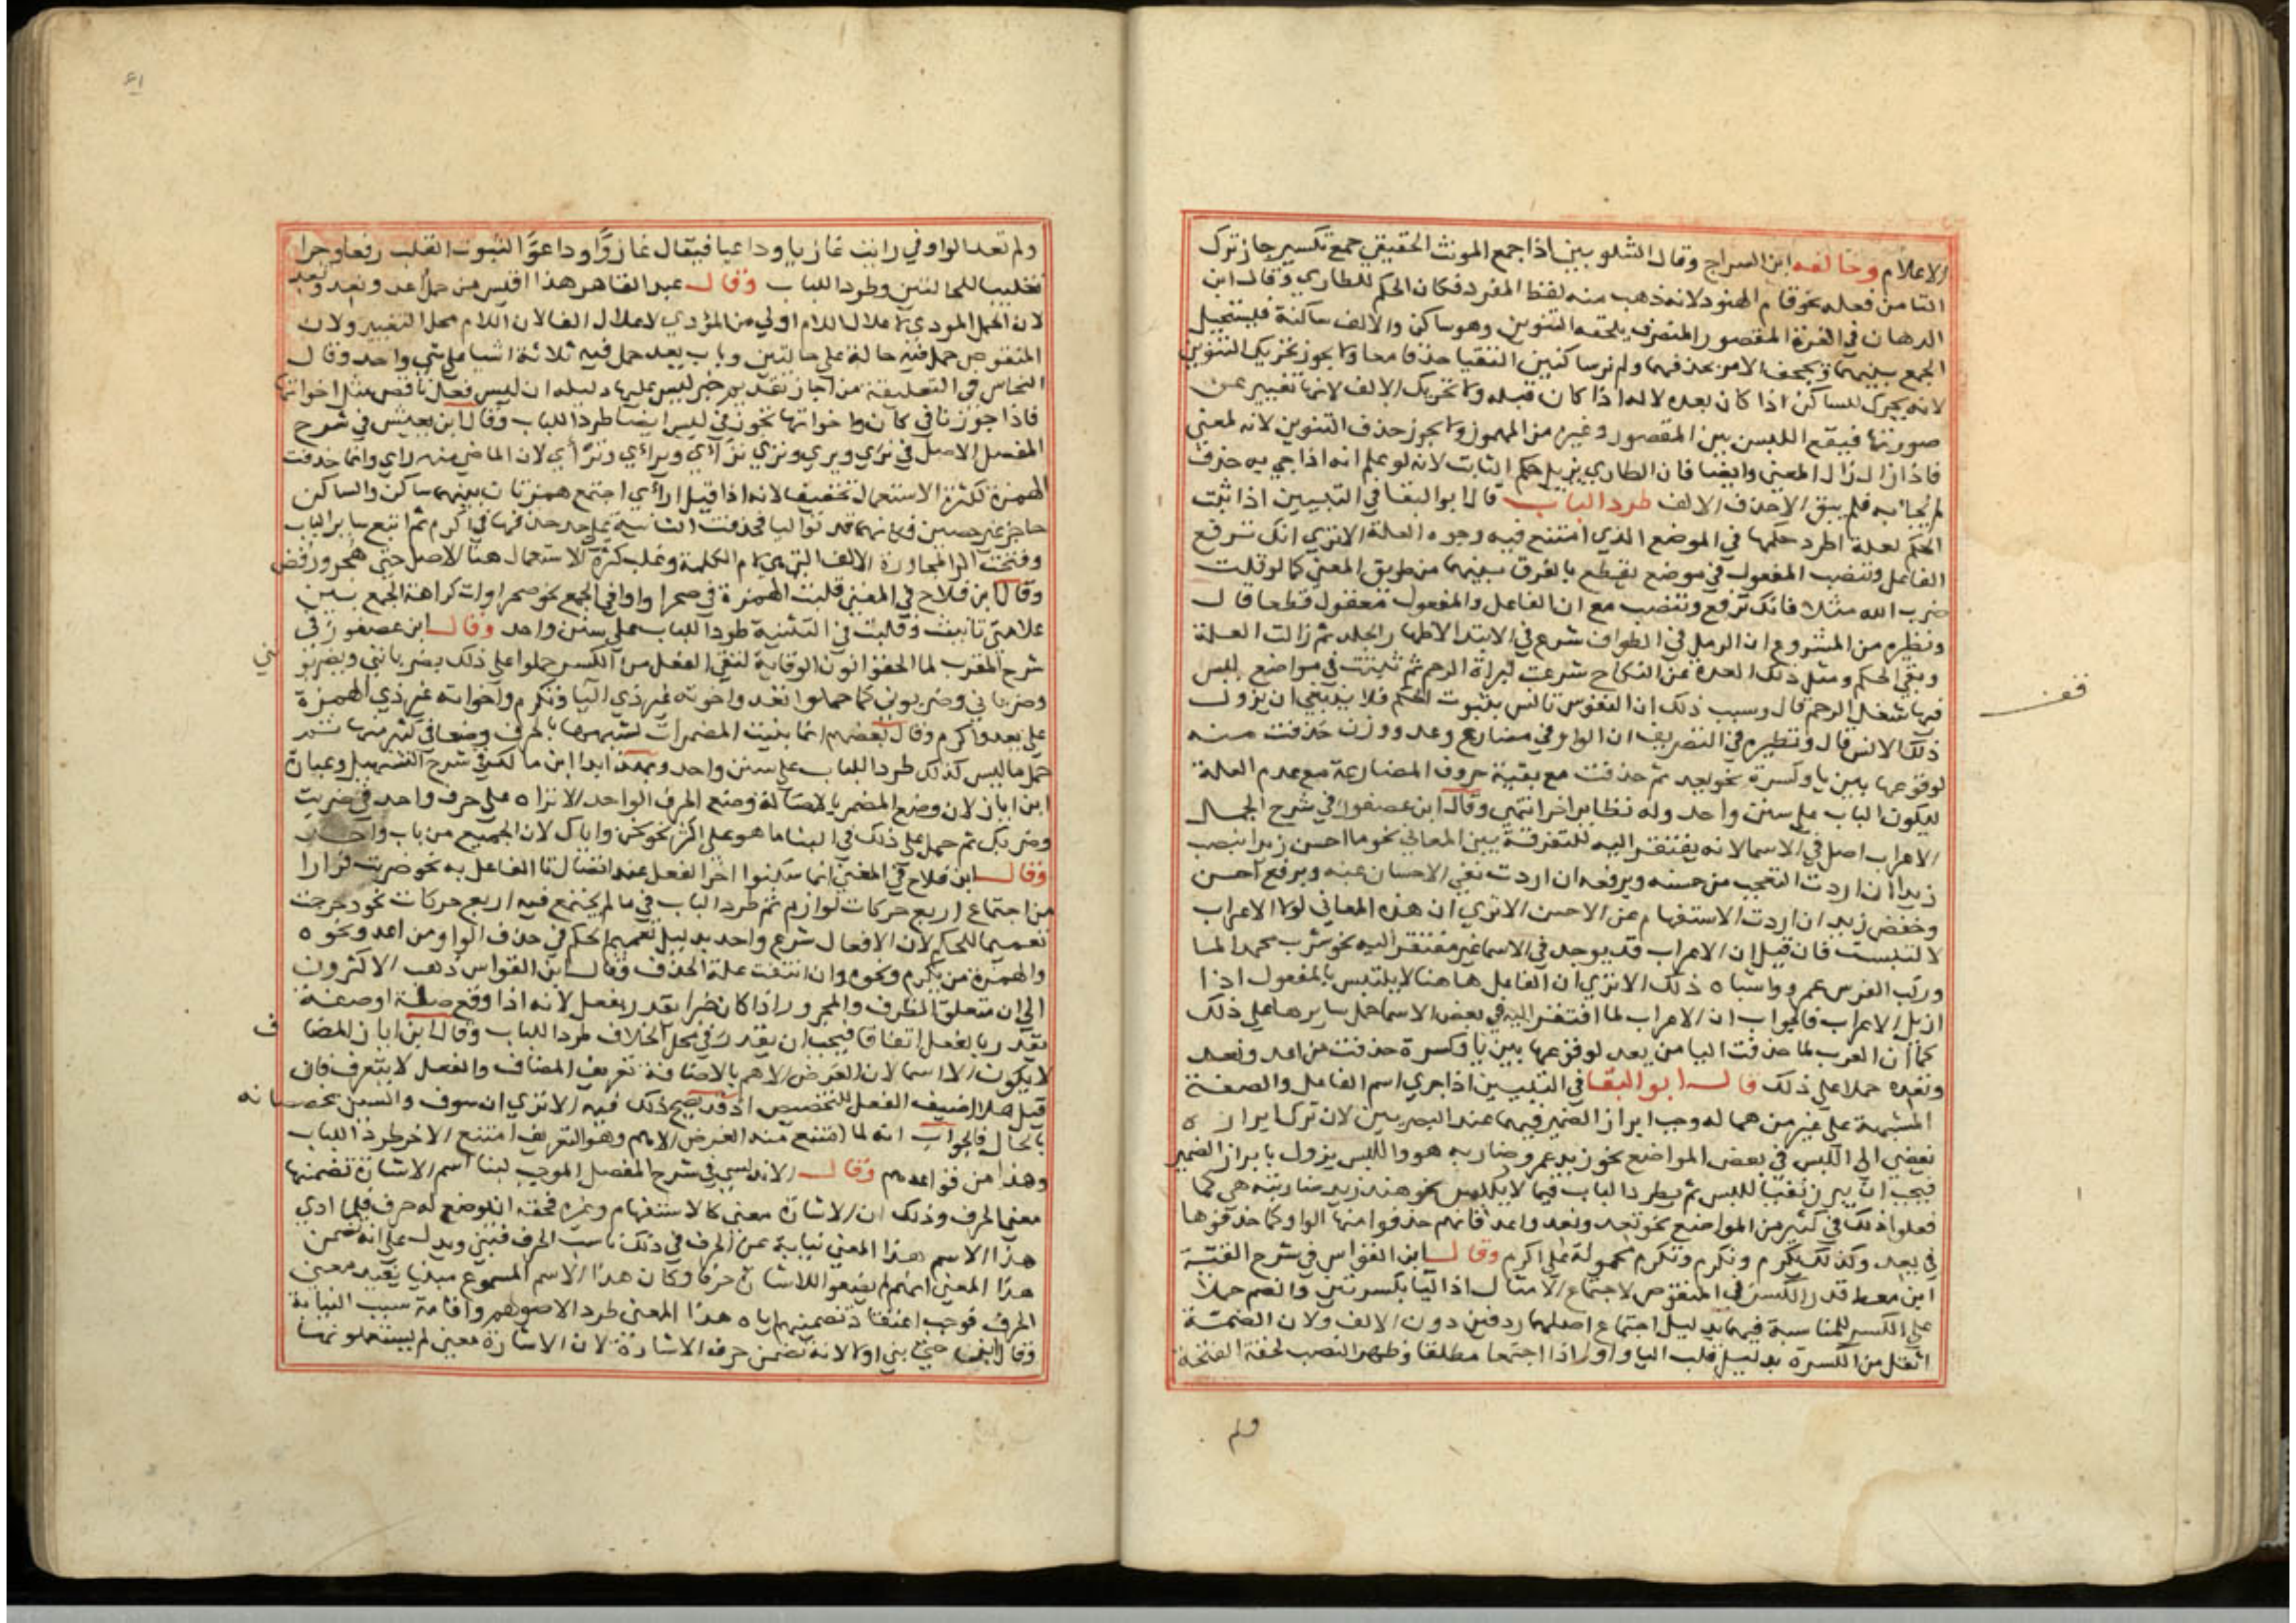 الاعلام وخالفه ابن السراج وقال الشلوبين اذا جمع المونث الحقيقي جمع تكسير جاز ترك
التا من فعله نحو قام الهنود لانه ذهب منه لفظ المفرد فكان الحكم للطاري وقال ابن
الدهان في الغرة المقصور المنصرف يلحقه التنوين وهو ساكن والالف ساكنة فيستحيل
الجمع بينهما ويجحف الامر بحذفهما ولم نر ساكنين التقيا حذفا معا ولا يجوز تحريك التنوين
لانه يحرك للساكن اذا كان بعده لا له اذا كان قبله ولا تحريك الالف لانها تغيير عن
صورتها فيقع اللبس بين المقصور وغيره من المهموز ولا يجوز حذف التنوين لانه لمعنى
فاذا زال زال المعنى وايضا فان الطاري يزيل حكم الثابت لانه لو علم انه اذا جي به حذف
لم يجا به فلم يبق الا حذف الالف طرد الباب قال ابو البقا في التبيين اذا ثبت
الحكم لعلة اطرد حكمها في الموضع الذي امتنع فيه وجوه العلة الا تري انك ترفع
الفاعل وتنصب المفعول في موضع يقطع بالفرق بينهما من طريق المعني كما لو قلت
ضرب الله مثلا فانك ترفع وتنصب مع ان الفاعل والمفعول معقول قطعا قال
ونظيره من المشروع ان الرمل في الطواف شرع في الابتدا لاظهار الجلد ثم زالت العلة
وبقي الحكم ومثل ذلك العدة عن النكاح شرعت لبراة الرحم ثم ثبتت في مواضع ليس
فيها شغل الرحم قال وسبب ذلك ان النفوس تانس بثبوت الحكم فلا ينبغي ان يزول
ذلك الانس قال ونظيره في التصريف ان الواو في مضارع وعد ووزن حذفت منه
لوقوعها بين يا وكسرة نحو يعد ثم حذفت مع بقية حروف المضارعة مع عدم العلة
ليكون الباب على سنن واحد وله نظاير اخر انتهي وقال ابن عصفور في شرح الجمل
الاعراب اصل في الاسما لانه يفتقر اليه للتفرقة بين المعاني نحو ما احسن زيدا بنصب
زيد ان اردت التعجب من حسنه وبرفعه ان اردت نفي الاحسان عنه وبرفع احسن
وخفض زيد ان اردت الاستفهام عن الاحسن الا تري ان هذه المعاني لولا الاعراب
لالتبست فان قيل ان الاعراب قد يوجد في الاسما غير مفتقر اليه نحو شرب محمد الما
وركب الفرس عمرو واشباه ذلك الا تري ان الفاعل هاهنا لا يلتبس بالمفعول اذا
ازيل الاعراب فالجواب ان الاعراب لما افتقر اليه في بعض الاسما حمل سايرها على ذلك
كما ان العرب لما حذفت اليا من يعد لوقوعها بين يا وكسرة حذفت من اعد ونعد
وتعد حملا على ذلك قال ابو البقا في التبيين اذا جري اسم الفاعل والصفة
المشبهة على غير من هما له وجب ابراز الضمير فيهما عند البصريين لان ترك ابرازه
يفضي الى اللبس في بعض المواضع نحو زيد عمرو ضاربه هو واللبس يزول بابراز الضمير
فيجب ان يبرز نفيا للبس ثم يطرد الباب فيما لا يلبس نحو هند زيد ضاربته هي كما
فعلوا ذلك في كثير من المواضع نحو تعد ونعد واعد فانهم حذفوا منها الواو كما حذفوها
في يعد وكذلك يكرم ونكرم وتكرم محمولة على اكرم وقال ابن القواس في شرح الفية
ابن معط قدر الكسر في المنقوص لاجتماع الامثال اذ اليا بكسرتين والضم حملا
على الكسر للمناسبة فيهما بدليل اجتماع اصليهما ردفين دون الالف ولان الضمة
اثقل من الكسرة بدليل قلب الياء واوا اذا اجتمعا مطلقا وظهر النصب لخفة الفتحة
ولم
قف
ولم تعد الواو في رايت غازيا وداعيا فيقال غازوا وداعوا لثبوت القلب رفعا وجرا
تغليبا للحالتين وطردا للباب وقال عبد القاهر هذا اقيس من حمل اعد ونعد وتعد
لان الحمل المودي لاعلال اللام اولي من المؤدي لاعلال الفا لان اللام محل التغيير ولان
المنقوص حمل فيه حالة على حالتين وباب يعد حمل فيه ثلاثة اشيا على شي واحد وقال
النحاس في التعليقة من اجاز تقديم خبر ليس عليها دليله ان ليس فعل ناقص مثل اخواتها
فاذا جوزنا في كان واخواتها نجوز في ليس ايضا طردا للباب وقال ابن يعيش في شرح
المفصل الاصل في تري ويري ونري ترآي ويرأي ونرأي لان الماضي منه راي وانما حذفت
الهمزة لكثرة الاستعمال تخفيفا لانه اذا قيل ارأي اجتمع همزتان بينهما ساكن والساكن
حاجز غير حصين فكانهما قد تواليا فحذفت الثانية على حد حذفها في اكرم ثم اتبع ساير الباب
وفتحت الرا لمجاورة الالف التي هي لام الكلمة وغلب كثرة الاستعمال هنا الاصل حتى هجر ورفض
وقال ابن فلاح في المغني قلبت الهمزة في صحرا واوا في الجمع نحو صحراوات كراهة الجمع بين
علامتي تانيث وقلبت في التثنية طردا للباب على سنن واحد وقال ابن عصفور في
شرح المقرب لما الحقوا نون الوقاية لتقي الفعل من الكسر حملوا على ذلك يضربانني ويضربونني
وضرباني وضربوني كما حملوا نعد واخوته غير ذي اليا ونكرم واخواته غير ذي الهمزة
على يعد واكرم وقال بعضهم انما بنيت المضمرات لشبهها بالحرف وضعا في كثير منها ثم
حمل ما ليس كذلك طردا للباب على سنن واحد وبهذا ابدا ابن مالك في شرح التسهيل وعبارة
ابن اياز لان وضع المضمر بالاصالة وضع الحرف الواحد الا تراه على حرف واحد في ضربت
وضربك ثم حمل على ذلك في البنا ما هو على اكثر نحو نحن واياك لان الجميع من باب واحد
وقال ابن فلاح في المغني انما سكنوا اخر الفعل عند اتصال تا الفاعل به نحو ضربت فرارا
من اجتماع اربع حركات لوازم ثم طرد الباب في ما لم يجتمع فيه اربع حركات نحو دحرجت
تعميما للحكم لان الافعال شرع واحد بدليل تعميم الحكم في حذف الواو من اعد ونحوه
والهمزة من يكرم ونحوه وان انتفت علة الحذف وقال ابن القواس ذهب الاكثرون
الي ان متعلق الظرف والمجرور اذا كان خبرا يقدر بفعل لانه اذا وقع صلة او صفة
يقدر بالفعل اتفاقا فيجب ان يقدر في محل الخلاف طردا للباب وقال ابن اياز المضاف
لا يكون الا اسما لان الغرض الاهم بالاضافة تعريف المضاف والفعل لا يتعرف فان
قيل هلا اضيف الفعل للتخصيص اذ قد يصح ذلك فيه الا تري ان سوف والسين تخصصانه
بالحال فالجواب انه لما امتنع منه الغرض الاهم وهو التعريف امتنع الاخر طردا للباب
وهذا من قواعدهم وقال الاندلسي في شرح المفصل الموجب لبنا اسم الاشارة تضمنها
معني الحرف وذلك ان الاشارة معنى كالاستفهام وغيره فحقه ان يوضع له حرف فلما ادي
هذا الاسم هذا المعني نيابة عن الحرف في ذلك ناسب الحرف فبني ويدل على انه تضمن
هذا المعني انهم لم يضعوا للاشارة حرفا وكان هذا الاسم المسموع مبنيا يفيد معني
الحرف فوجب اعتقاد تضمينهم اياه هذا المعنى طردا لاصولهم واقامة سبب النيابة
وقال ايضا حيث بني اولا لانه تضمن حرف الاشارة لان الاشارة معني لم يستعملوا لها